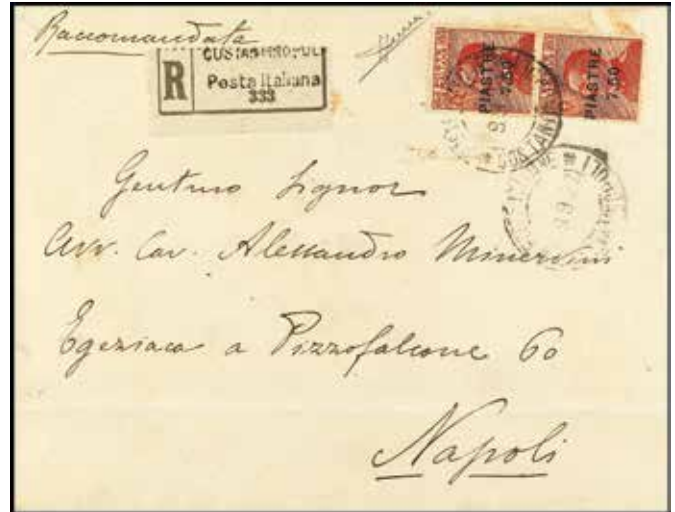 Raccomandata
R
COSTANTINOPOLI
Posta Italiana
333
PIASTRE
7,50
PIASTRE
7,50
Gentmo Signor
Avv. Cav. Alessandro Minervini
Egeziaca a Pizzofalcone 60
Napoli